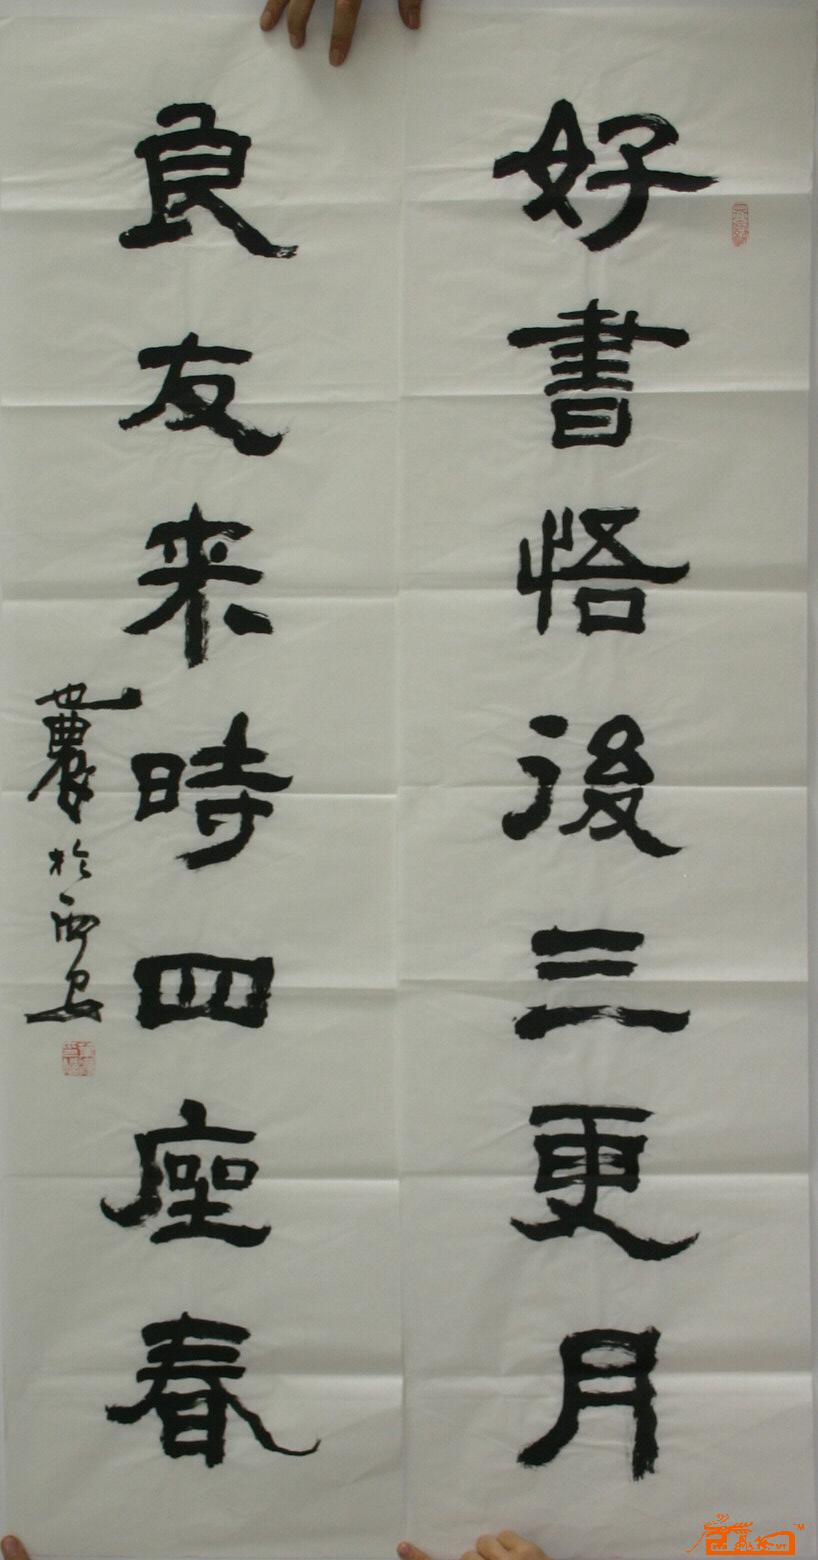 好書悟後三更月
良友来時四座春
世農於西安